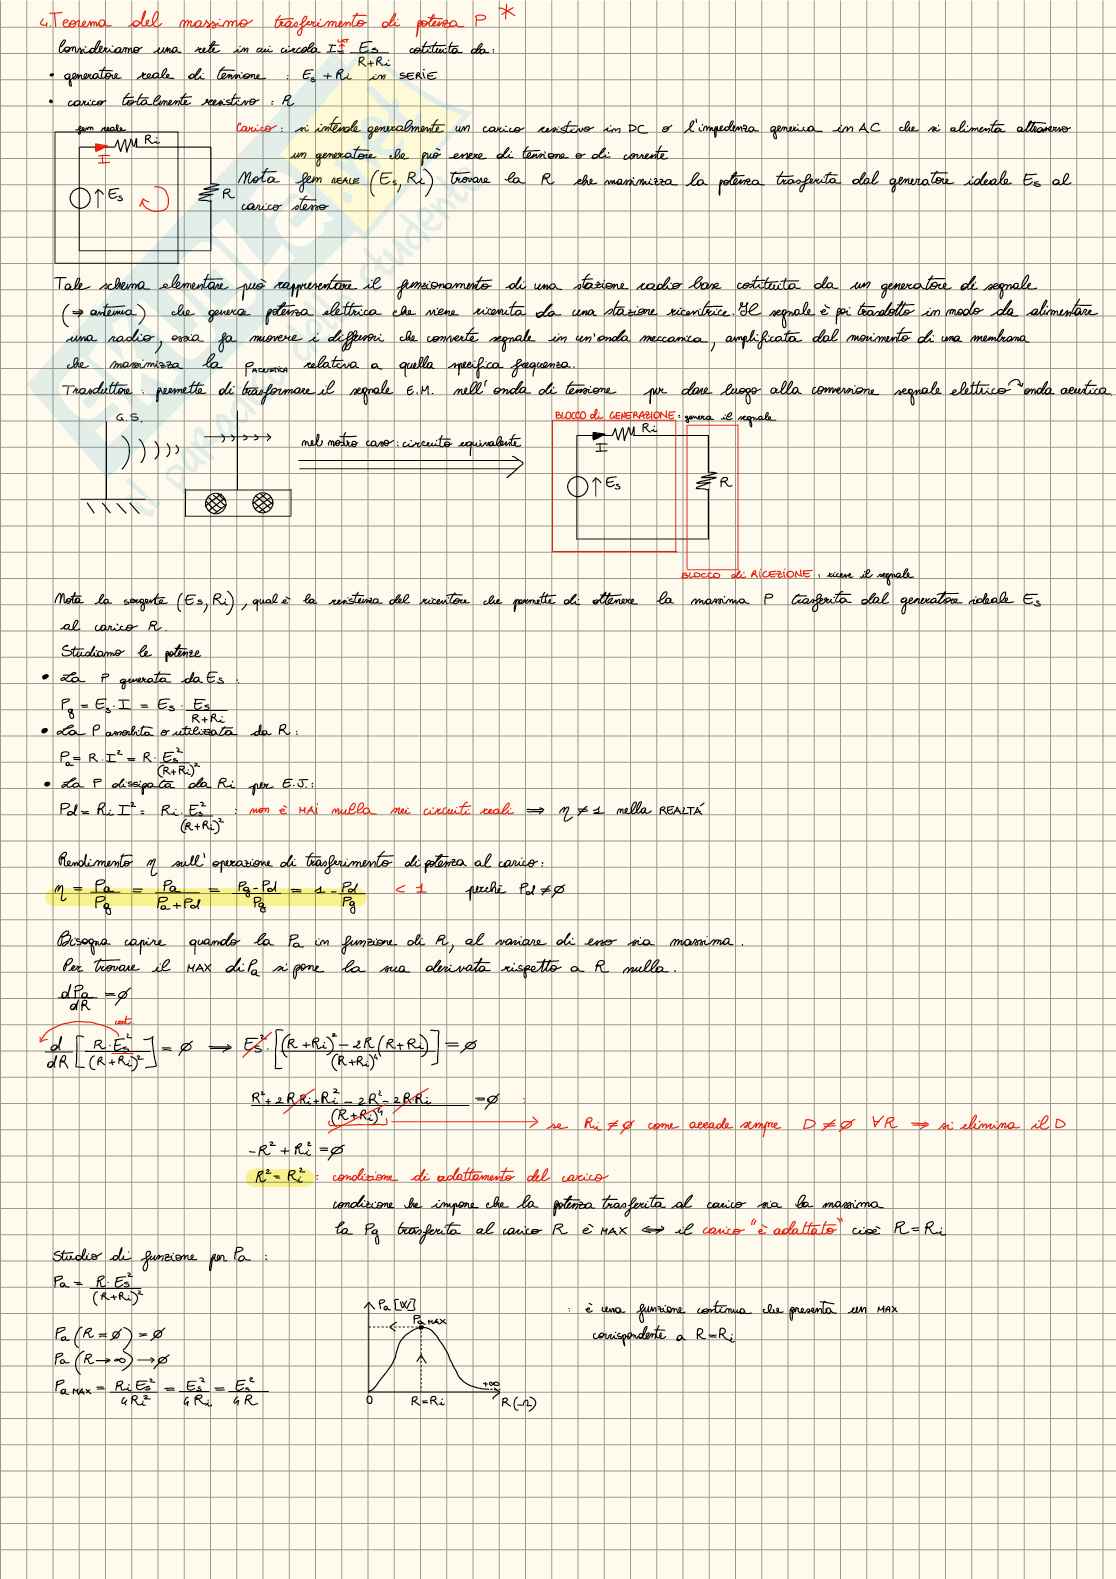 4. Teorema del massimo trasferimento di potenza P *
Consideriamo una rete in cui circola I = Es/(R+Ri) costituita da:
• generatore reale di tensione : Es + Ri in SERIE
• carico totalmente resistivo : R
fem reale
Ri
I
Es
R
Carico: si intende generalmente un carico resistivo in DC o l'impedenza generica in AC che si alimenta attraverso
un generatore che può essere di tensione o di corrente
Nota fem REALE (Es, Ri) trovare la R che massimizza la potenza trasferita dal generatore ideale Es al
carico stesso
Tale schema elementare può rappresentare il funzionamento di una stazione radio base costituita da un generatore di segnale
(→ antenna) che genera potenza elettrica che viene ricevuta da una stazione ricevitrice. Il segnale è poi tradotto in modo da alimentare
una radio, ossia fa muovere i diffusori che converte segnale in un'onda meccanica, amplificata dal movimento di una membrana
che massimizza la P ACUSTICA relativa a quella specifica frequenza.
Trasduttore: permette di trasformare il segnale E.M. nell'onda di tensione per dare luogo alla conversione segnale elettrico onda acustica
G.S.
nel nostro caso: circuito equivalente
BLOCCO di GENERAZIONE: genera il segnale
Ri
I
Es
R
BLOCCO di RICEZIONE: riceve il segnale
Nota la sorgente (Es, Ri), qual è la resistenza del ricevitore che permette di ottenere la massima P trasferita dal generatore ideale Es
al carico R.
Studiamo le potenze
• La P generata da Es :
Pg = Es · I = Es · Es/(R+Ri)
• La P assorbita o utilizzata da R :
Pa = R · I² = R · Es²/(R+Ri)²
• La P dissipata da Ri per E.J.:
Pd = Ri I² = Ri · Es²/(R+Ri)² : non è MAI nulla nei circuiti reali ⇒ η ≠ 1 nella REALTÁ
Rendimento η sull'operazione di trasferimento di potenza al carico:
η = Pa/Pg = Pa/(Pa+Pd) = (Pg-Pd)/Pg = 1 - Pd/Pg < 1 perché Pd ≠ ∅
Bisogna capire quando la Pa in funzione di R, al variare di esso sia massima.
Per trovare il MAX di Pa si pone la sua derivata rispetto a R nulla.
dPa/dR = ∅
cost
d/dR [R · Es²/(R+Ri)²] = ∅ ⇒ Es² · [((R+Ri)² - 2R(R+Ri))/(R+Ri)⁴] = ∅
(R² + 2RRi + Ri² - 2R² - 2RRi)/(R+Ri)⁴ = ∅
→ se Ri ≠ ∅ come accade sempre D ≠ ∅ ∀R ⇒ si elimina il D
-R² + Ri² = ∅
R² = Ri² : condizione di adattamento del carico
condizione che impone che la potenza trasferita al carico sia la massima
la Pg trasferita al carico R è MAX ⇔ il carico "è adattato" cioè R = Ri
Studio di funzione per Pa :
Pa = R · Es²/(R+Ri)²
Pa (R = ∅) = ∅
Pa (R → ∞) → ∅
Pa MAX = Ri Es²/4Ri² = Es²/4Ri = Es²/4R
Pa [W]
Pa MAX
+∞
0
R = Ri
R (Ω)
: è una funzione continua che presenta un MAX
corrispondente a R = Ri